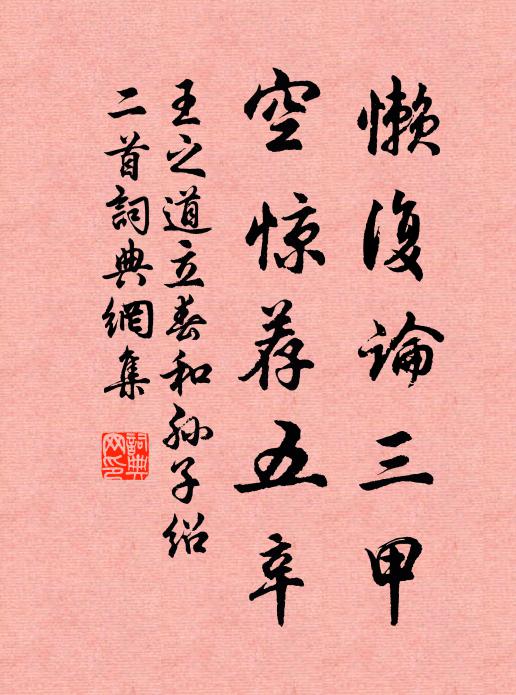 懒復論三甲
空惊荐五辛
王之道立春和孙子绍
二首詞典網集
詞典
网印